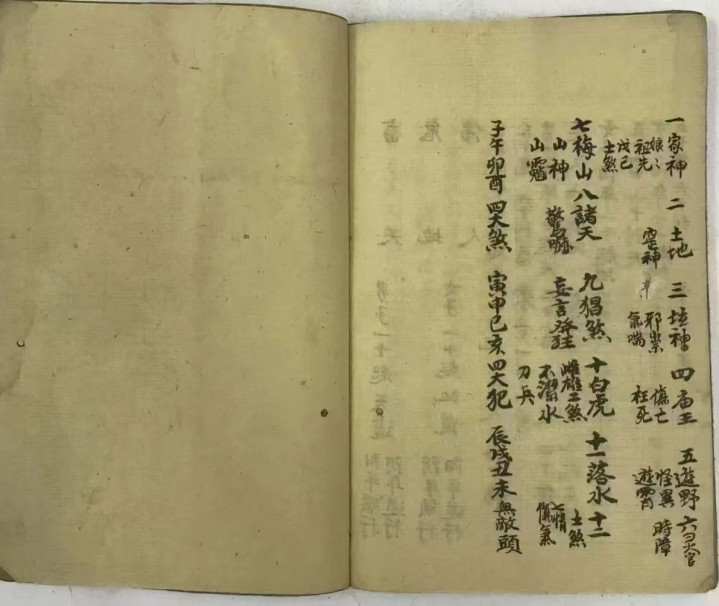 一家神 二土地 三坛神 四庙王 五遊野 六天官
娘〻祖先 邪祟 傷亡 怪異 時障
戊己土煞 氣喘 枉死
七梅山 八諸天 九猖煞 十白虎 十一落水 十二土煞
山神 妄言 雌雄二煞 七情
山 不潔水 傷氣
刀兵
子午卯酉四大煞 寅申巳亥四大犯 辰戌丑未無敵頭